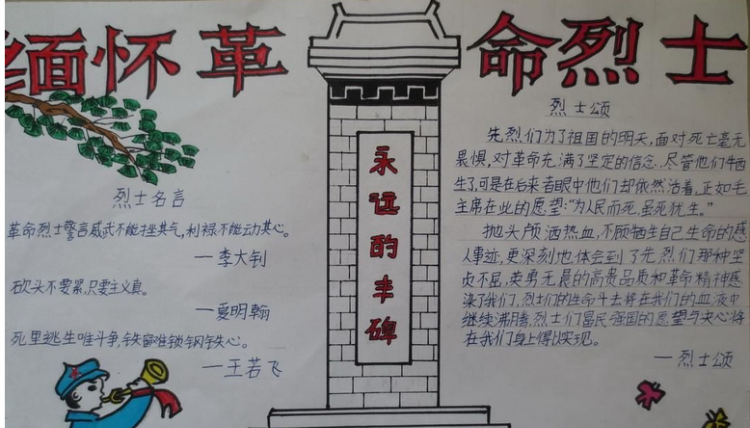 缅怀革命烈士
烈士名言
革命烈士警言威武不能挫其气,利禄不能动其心。
一李大钊
砍头不要紧,只要主义真。
一夏明翰
死里逃生唯斗争,铁窗难锁钢铁心。
一王若飞
永远的丰碑
烈士颂
先烈们为了祖国的明天,面对死亡毫无
畏惧,对革命充满了坚定的信念.尽管他们牺
生了,可是在后来者眼中他们却依然活着,正如毛
主席在此的愿望:“为人民而死,虽死犹生。”
抛头颅洒热血,不顾牺生自己生命的感
人事迹,更深刻也体会到了先烈们那种坚
贞不屈,英勇无畏的高贵品质和革命精神感
染了我们,烈士们的生命斗志将在我们的血夜中
继续沸腾,烈士们富民强国的愿望与决心将
在我们身上得以实现。
一烈士颂